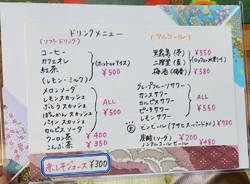 ドリンクメニュー
(ソフトドリンク)
コーヒー
カフェオレ
紅茶
(レモン・ミルク)
(ホット or アイス)
¥500
メロンソーダ
レモンスカッシュ
ぶどうスカッシュ
ぽんかんスカッシュ
パインスカッシュ
カルピスソーダ
ALL
¥500
ウーロン茶 ¥400
こんぶ茶 ¥350
赤しそジュース ¥300
(アルコール)
黒霧島(芋) ¥550
二階堂(麦)
梅酒 ¥580
グレープフルーツサワー
カシスサワー
カルピスサワー
ピーチサワー
ライムサワー
レモンサワー
ALL
¥550
生ビール(アサヒスーパードライ) ¥900
¥200
ノンアルコールビール ¥480